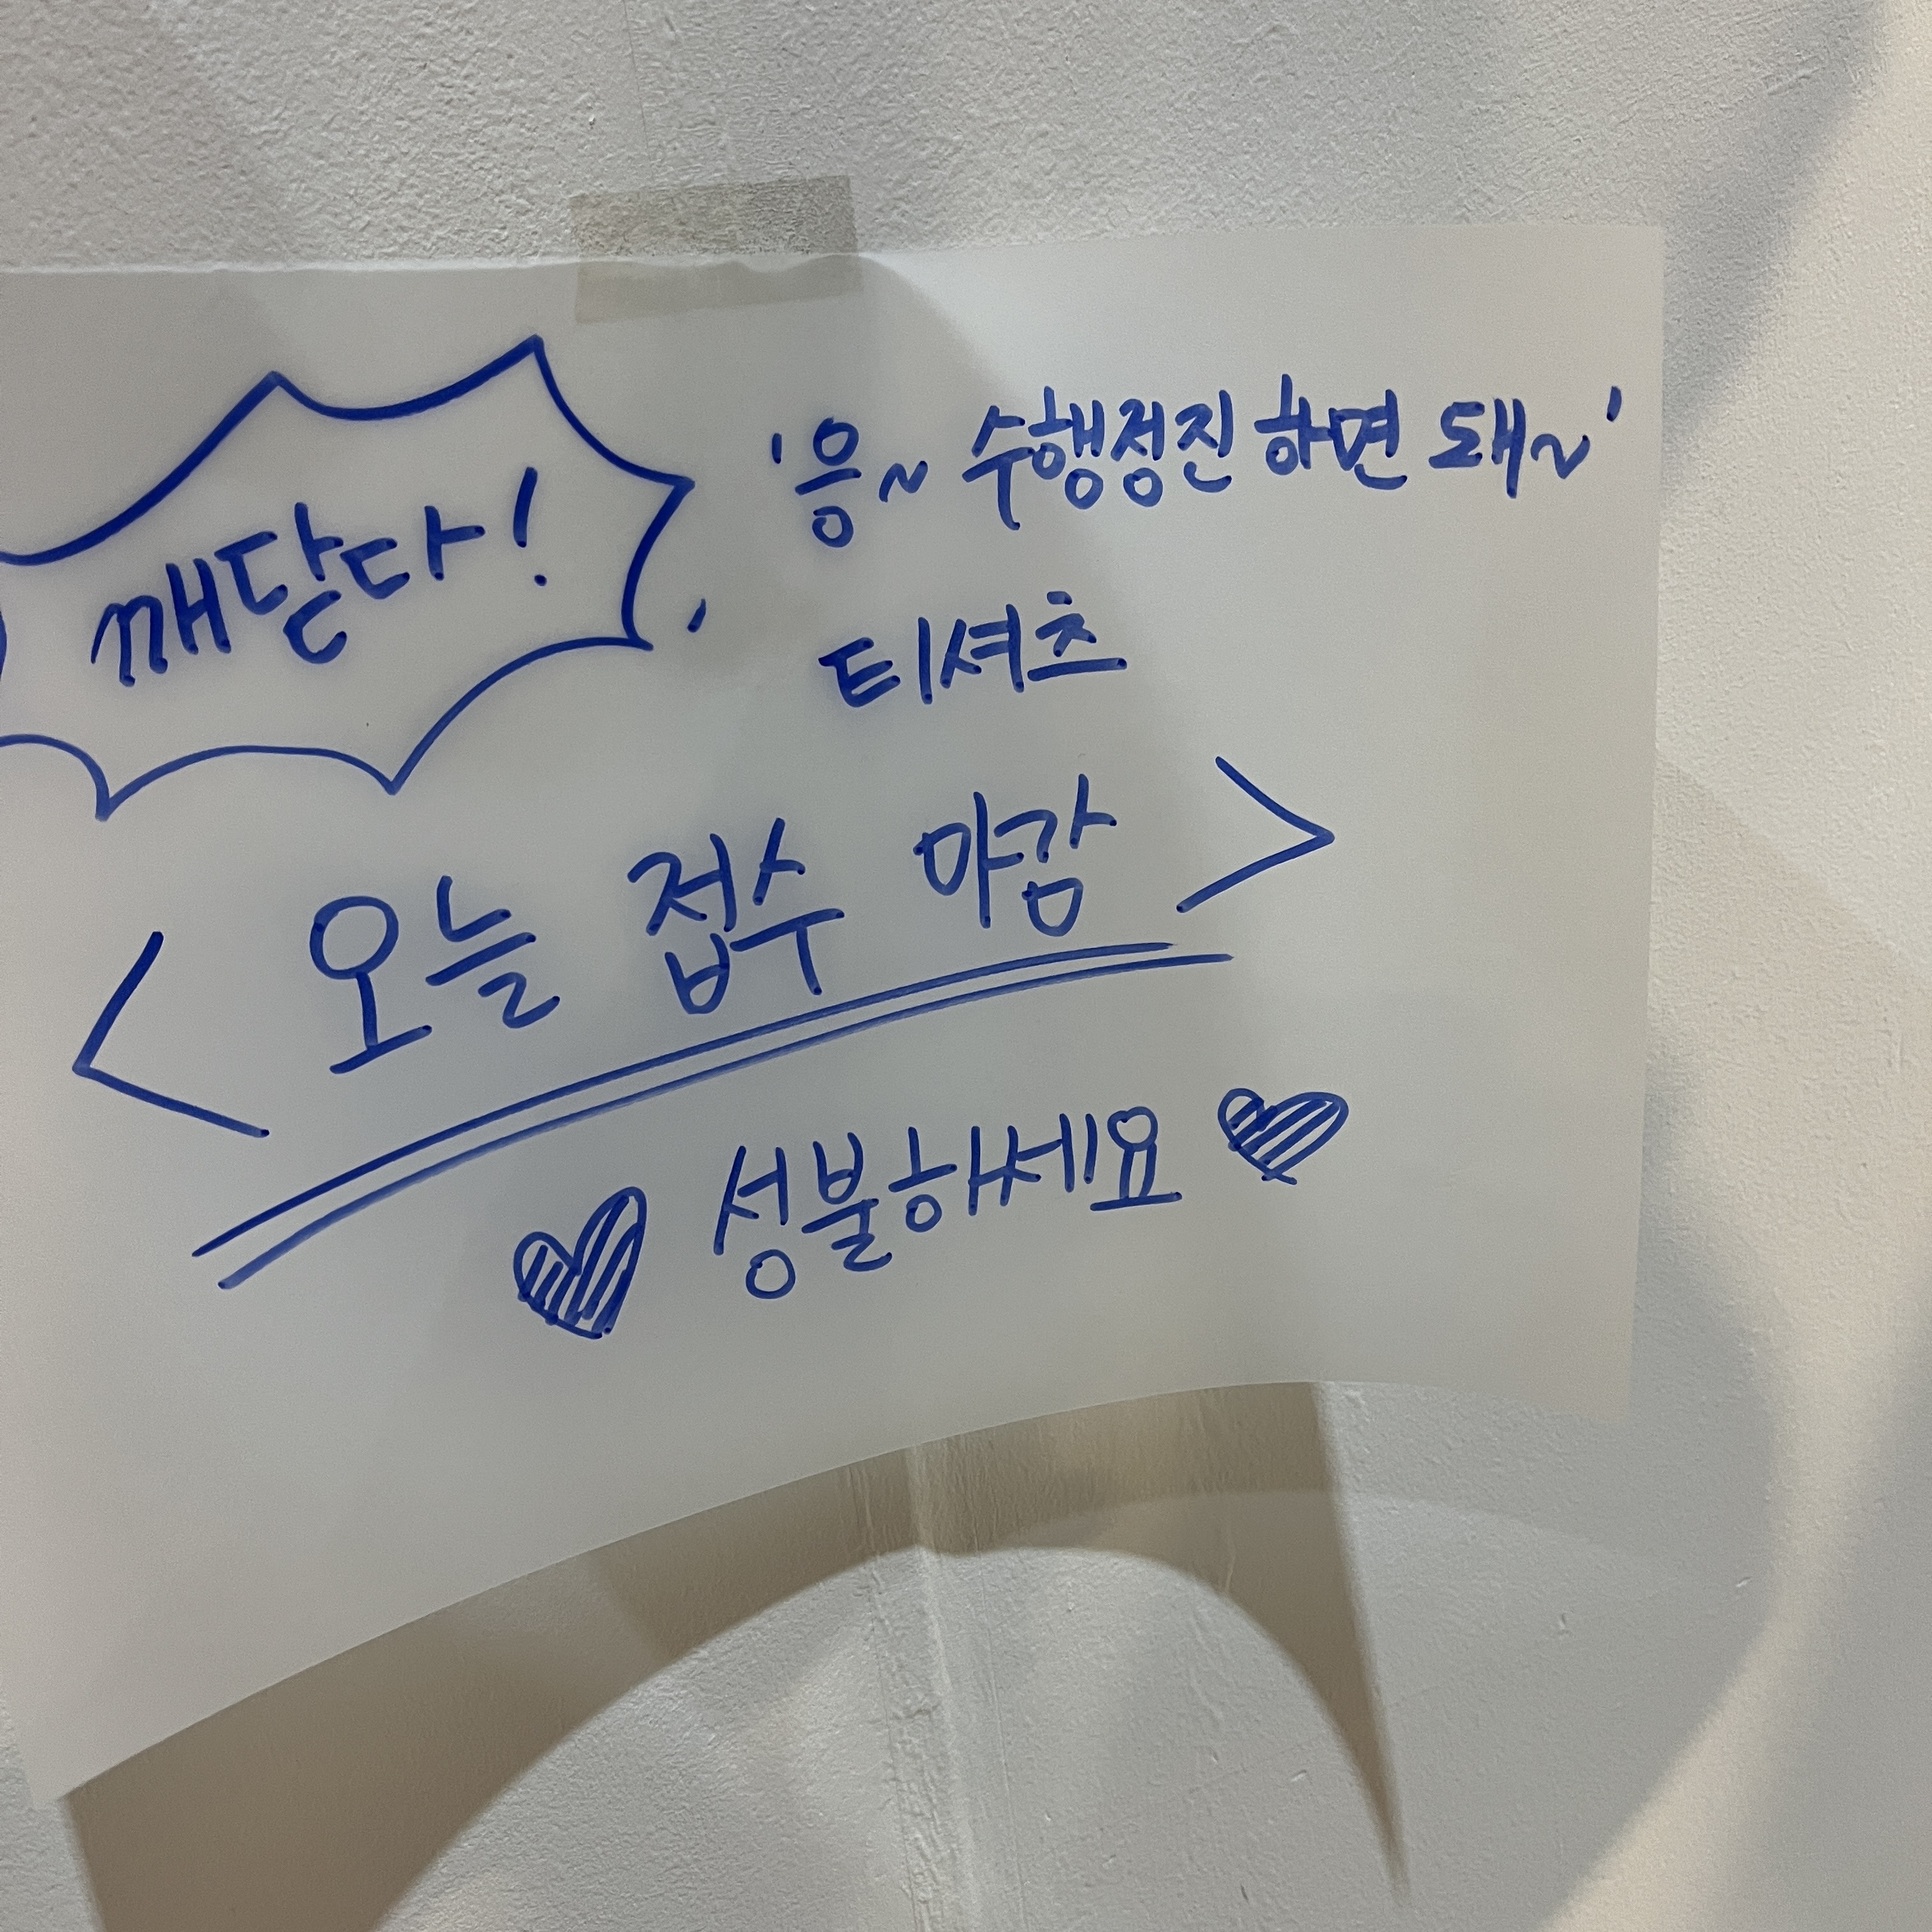 깨닫다!, '응~ 수행정진하면 돼~'
티셔츠
< 오늘 접수 마감 >
♥ 성불하세요 ♥